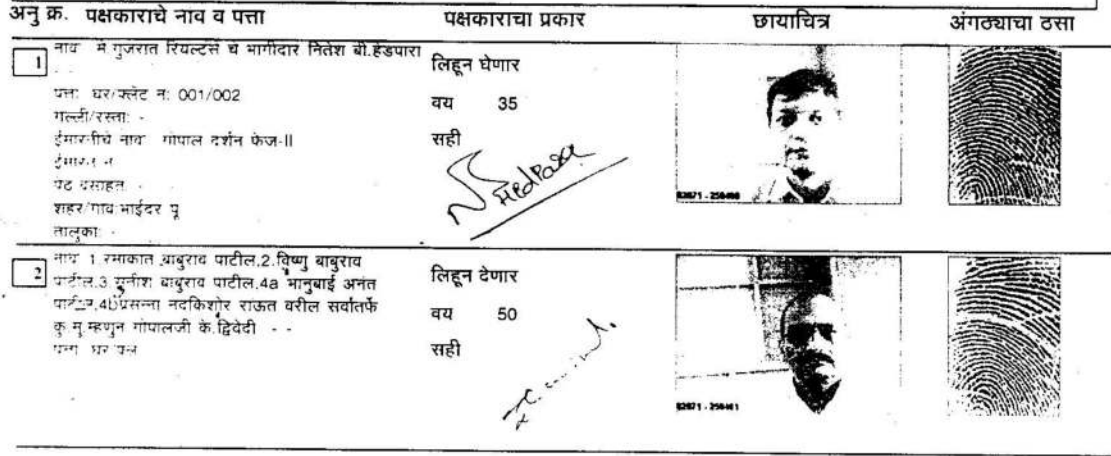 अनु क्र. पक्षकाराचे नाव व पत्ता पक्षकाराचा प्रकार छायाचित्र अंगठ्याचा ठसा
1
नाव मे गुजरात रियल्टर्स चे भागीदार नितेश बी.हेडपारा
लिहून घेणार
पत्ता: घर/फ्लॅट नं: 001/002
वय 35
गल्ली/रस्ता: -
ईमारतीचे नाव गोपाल दर्शन फेज-II
सही
ईमारत नं
पेठ वसाहत -
शहर/गाव भाईंदर पू
तालुका: -
NHedpara
82871 - 258460
2
नाव 1 रमाकांत बाबुराव पाटील,2.विष्णु बाबुराव
पाटील,3 सुनीश बाबुराव पाटील,4a भानुबाई अनंत
पाटील,4b प्रसन्ना नंदकिशोर राऊत वरील सर्वातर्फे
कु मु म्हणुन गोपालजी के.द्विवेदी - -
पत्ता घर फ्ल
लिहून देणार
वय 50
सही
82871 - 258461